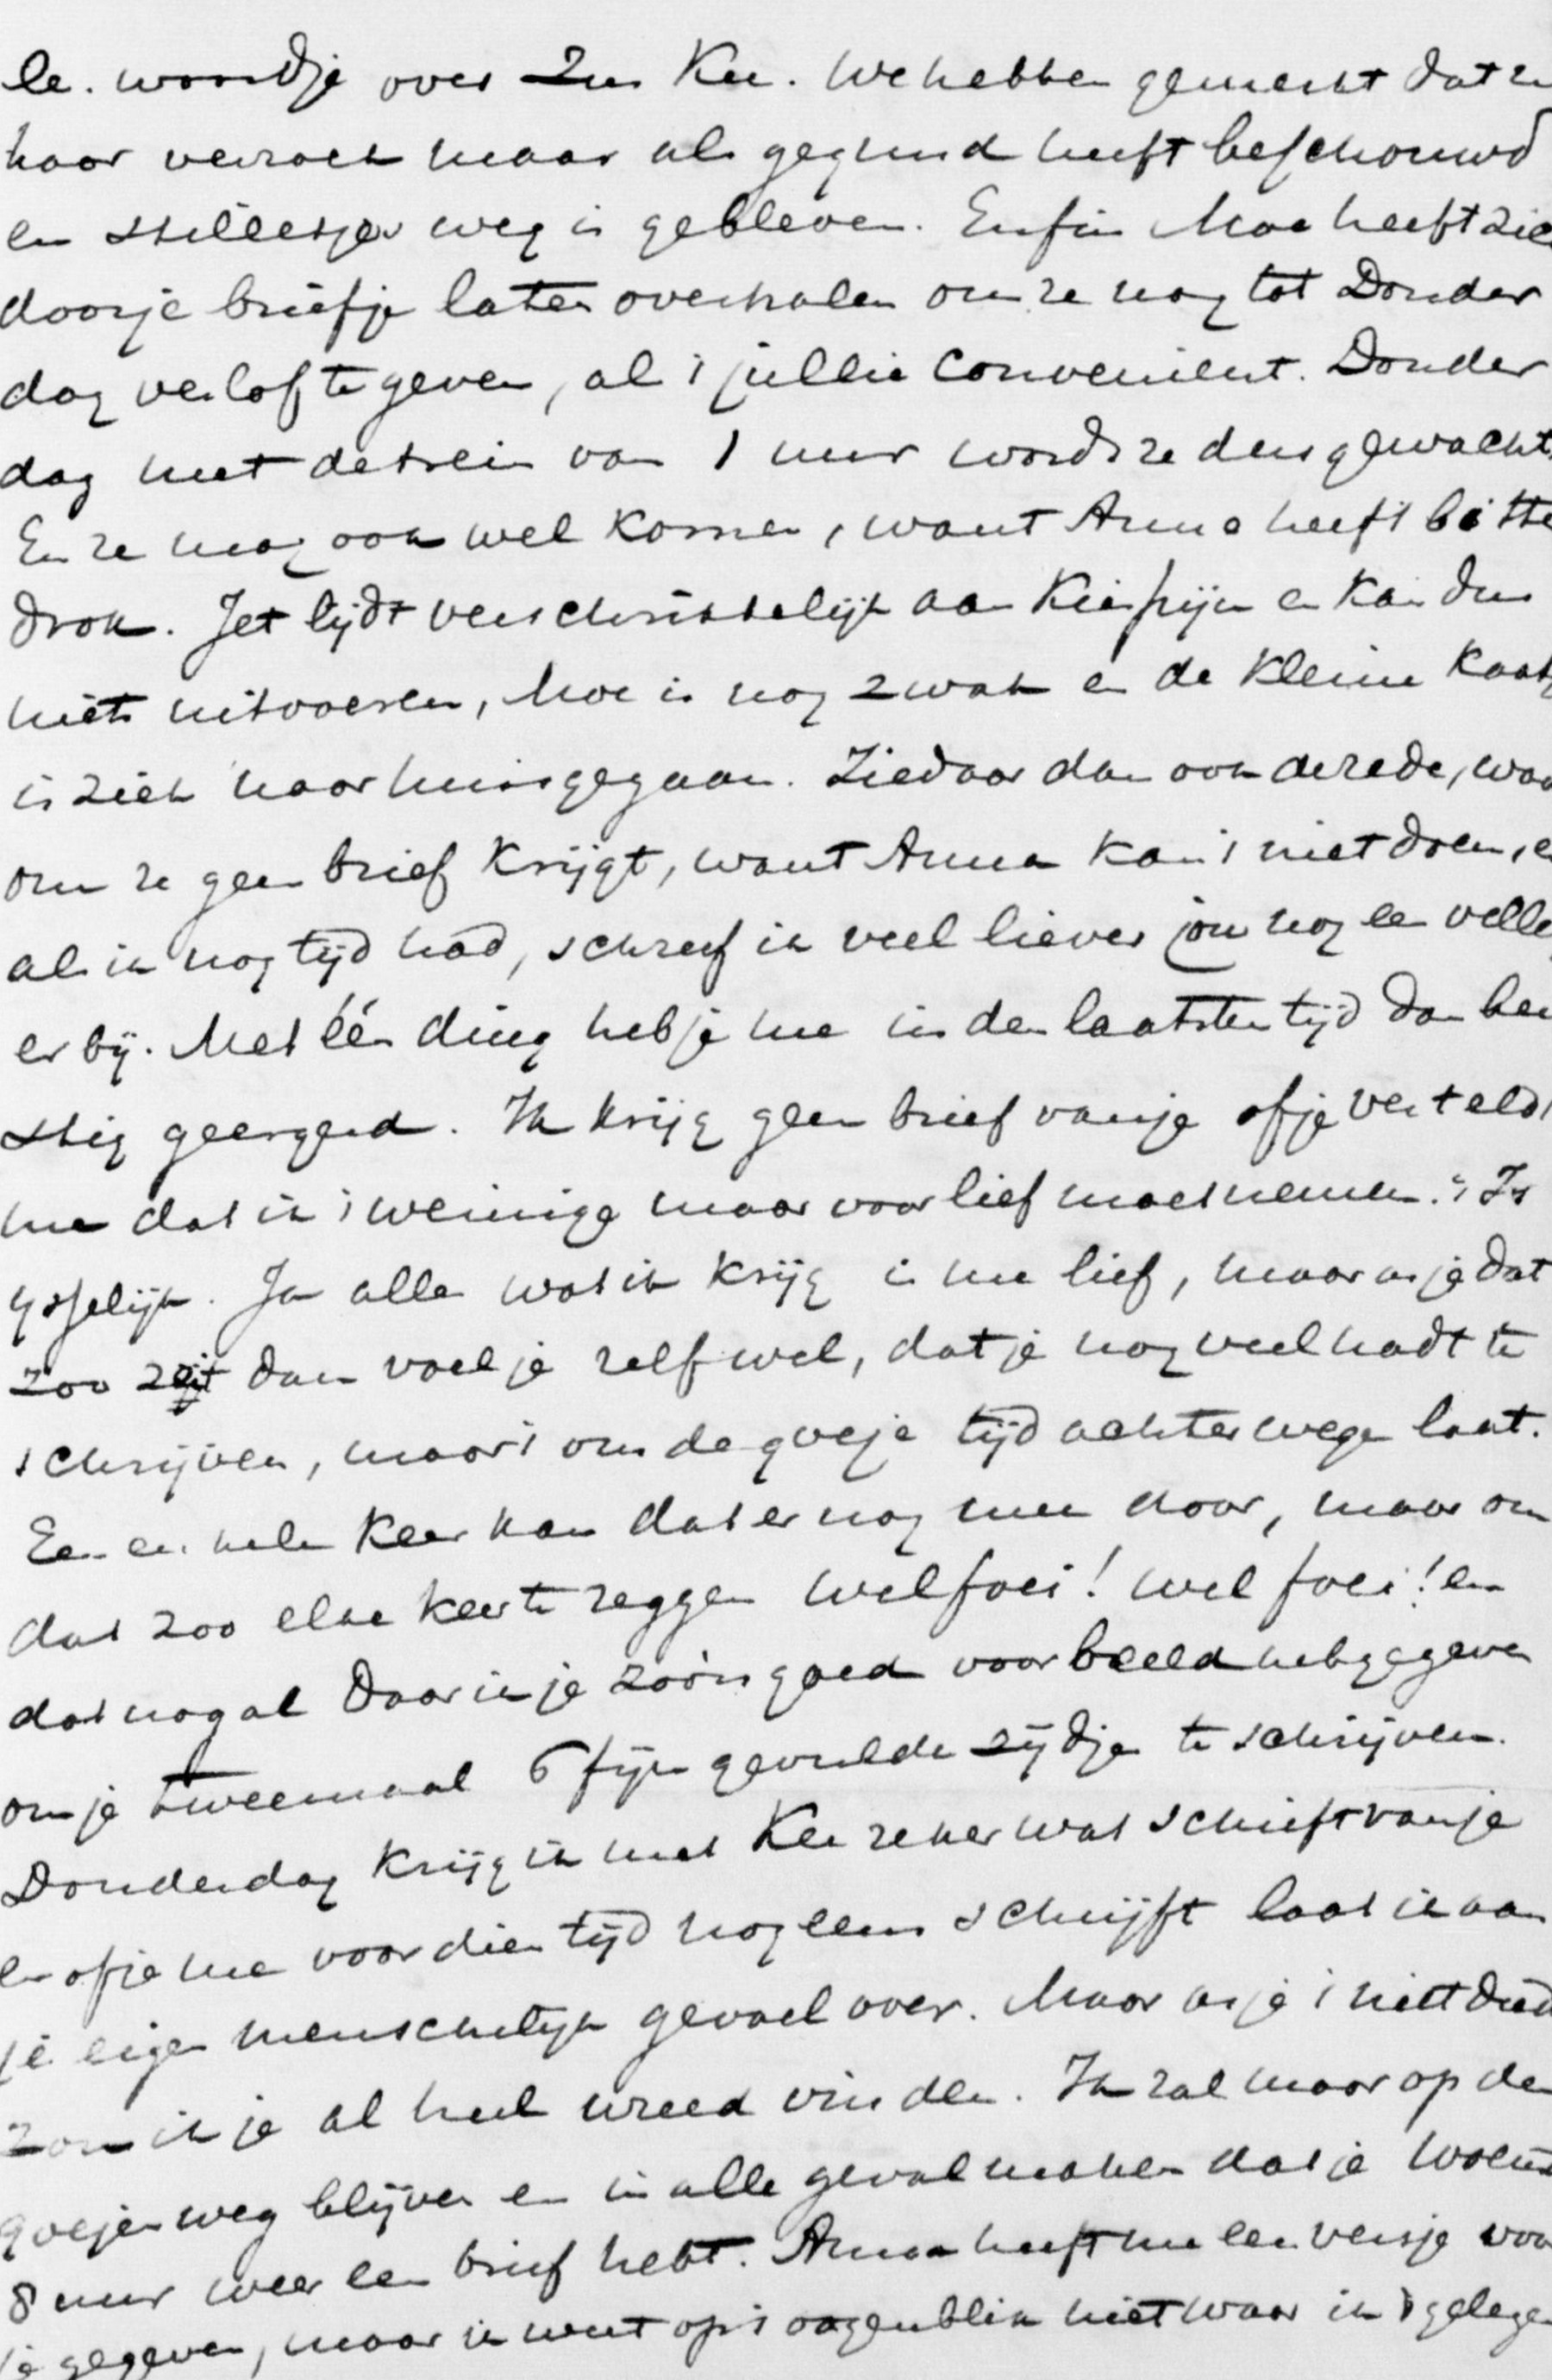 en woordje over Zus Kee. We hebben gemerkt dat ze
haar verzoek maar als gegund heeft beschouwd
en stilletjes weg is gebleven. Enfin Moe heeft zich
door je briefje laten overhalen om ze nog tot Donder
dag verlof te geven, als 't jullie convenieert. Donder
dag met de trein van 1 uur wordt ze dus gewacht.
En ze mag ook wel komen, want Anna heeft 't bitter
drok. Jet lijdt verschrikkelijk aan Kiespijn en kan dus
niets uitvoeren, Moe is nog zwak en de kleine Kaatje
is ziek naar huis gegaan. Ziedaar dan ook de rede, waar
om ze geen brief krijgt, want Anna kan 't niet doen, en
als ik nog tijd had, schreef ik veel liever jou nog een velletje
er bij. Met één ding heb je me in den laatsten tijd dan
stig geergerd. Ik krijg geen brief van je of je verteld
me dat ik 't weinige maar voor lief moet nemen. 't Is
ysselijk. Ja alles wat ik krijg is me lief, maar as je dat
zoo zeit dan voel je zelf wel, dat je nog veel hadt te
schrijven, maar 't om de goeje tijd achterwege laat.
Een enkele keer kan dat er nog mee door, maar om
dat zoo elke keer te zeggen wel foei! wel foei! en
dat nog al daar ik je zoo'n goed voorbeeld heb gegeven
om je tweemaal 6 fijn gevulde zijdjes te schrijven.
Donderdag krijg ik met Kee zeker wat schrift van je
en of je me voor dien tijd nog eens schrijft laat ik aan
je eigen menschelijk gevoel over. Maar as je 't niet deed
zou ik je al heel wreed vinden. Ik zal maar op den
goejen weg blijven en in alle geval maken dat je Woens
8 uur weer een brief hebt. Anna heeft me een versje voor
je gegeven, maar ik weet op 't oogenblik niet waar ik 't gelegen